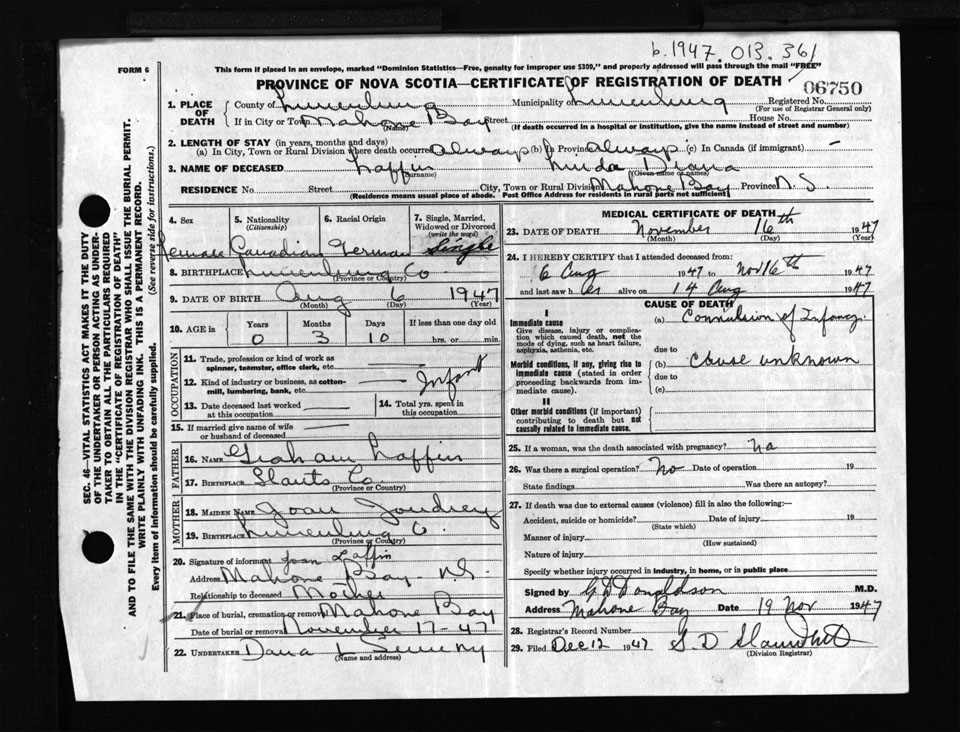 b.1947.013.361
FORM 6
This form if placed in an envelope, marked "Dominion Statistics—Free, penalty for improper use $300," and properly addressed will pass through the mail "FREE"
PROVINCE OF NOVA SCOTIA—CERTIFICATE OF REGISTRATION OF DEATH
06750
1. PLACE OF DEATH
County of Lunenburg Municipality of Lunenburg Registered No.
(For use of Registrar General only)
If in City or Town Mahone Bay Street House No.
(Name) (If death occurred in a hospital or institution, give the name instead of street and number)
2. LENGTH OF STAY (in years, months and days)
(a) In City, Town or Rural Division where death occurred always (b) In Province always (c) In Canada (if immigrant) —
3. NAME OF DECEASED Laffin Linda Diana
(Surname) (Given name or names)
RESIDENCE No Street City, Town or Rural Division Mahone Bay Province N.S
(Residence means usual place of abode. Post Office Address for residents in rural parts not sufficient)
4. Sex
Female
5. Nationality
(Citizenship)
Canadian
6. Racial Origin
German
7. Single, Married, Widowed or Divorced
(write the word)
Single
8. BIRTHPLACE Lunenburg Co
(Province or Country)
9. DATE OF BIRTH Aug 6 1947
(Month) (Day) (Year)
10. AGE in
Years Months Days If less than one day old
0 3 10 hrs. or min.
OCCUPATION
11. Trade, profession or kind of work as spinner, teamster, office clerk, etc. —
12. Kind of industry or business, as cotton-mill, lumbering, bank, etc. — Infant
13. Date deceased last worked at this occupation —
14. Total yrs. spent in this occupation —
15. If married give name of wife or husband of deceased —
FATHER
16. NAME Graham Laffin
17. BIRTHPLACE Hants Co
(Province or Country)
MOTHER
18. MAIDEN NAME Joan Joudrey
19. BIRTHPLACE Lunenburg Co.
(Province or Country)
20. Signature of informant Joan Laffin
Address Mahone Bay N.S.
Relationship to deceased Mother
21. Place of burial, cremation or removal Mahone Bay
Date of burial or removal November 17-47
22. UNDERTAKER Dana L
(Name and address)
MEDICAL CERTIFICATE OF DEATH
23. DATE OF DEATH November 16th 1947
(Month) (Day) (Year)
24. I HEREBY CERTIFY that I attended deceased from:
6 Aug 1947 to Nov 16th 1947
and last saw her alive on 14 Aug 1947
CAUSE OF DEATH
I
Immediate cause
Give disease, injury or complication which caused death, not the mode of dying, such as heart failure, asphyxia, asthenia, etc.
(a) Convulsion of Infancy.
due to
Morbid conditions, if any, giving rise to immediate cause (stated in order proceeding backwards from immediate cause).
(b) Cause unknown
due to
(c)
II
Other morbid conditions (if important) contributing to death but not causally related to immediate cause.
25. If a woman, was the death associated with pregnancy? na
26. Was there a surgical operation? No Date of operation 19
State findings Was there an autopsy?
27. If death was due to external causes (violence) fill in also the following:—
Accident, suicide or homicide? Date of injury 19
(State which)
Manner of injury
(How sustained)
Nature of injury
Specify whether injury occurred in industry, in home, or in public place
Signed by G D Donaldson M.D.
Address Mahone Bay Date 19 Nov 1947
28. Registrar's Record Number
29. Filed Dec 12 1947 S. D
(Division Registrar)
SEC. 46—VITAL STATISTICS ACT MAKES IT THE DUTY
OF THE UNDERTAKER OR PERSON ACTING AS UNDER-
TAKER TO OBTAIN ALL THE PARTICULARS REQUIRED
IN THE "CERTIFICATE OF REGISTRATION OF DEATH"
AND TO FILE THE SAME WITH THE DIVISION REGISTRAR WHO SHALL ISSUE THE BURIAL PERMIT.
WRITE PLAINLY WITH UNFADING INK. THIS IS A PERMANENT RECORD.
Every item of information should be carefully supplied. (See reverse side for instructions.)